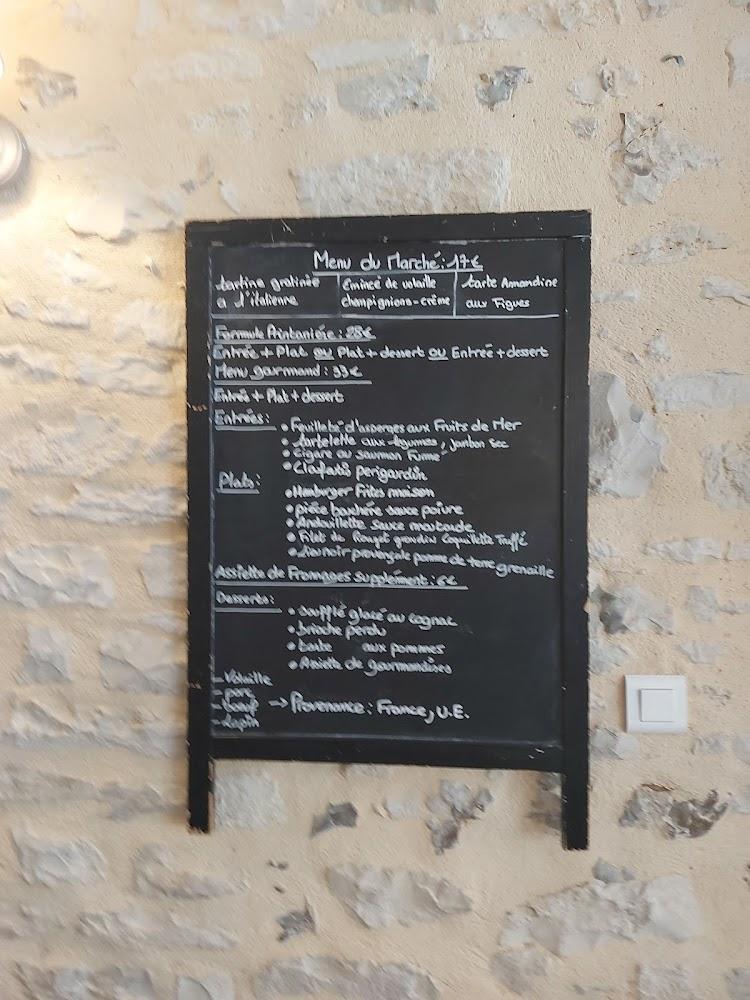 Menu du Marché : 17€
tartine gratinée
a l'italienne
émincé de volaille
champignions-crême
tarte Amandine
aux Figues
Formule Printanière : 28€
Entrée + Plat ou Plat + dessert ou Entrée + dessert
Menu gourmand : 33€
Entrée + Plat + dessert
Entrées :
• Feuilleté d'asperges aux Fruits de Mer
• tartelette aux légumes, jambon sec
• Cigare au saumon Fumé
• Clafoutis perigourdin
Plats :
• Hamburger Frites maison
• pièce bouchère sauce poivre
• Andouillette sauce moutarde
• Filet de Rouget grondin Coquillette Truffé
• provençale pomme de terre grenaille
Assiette de Fromages supplément : 6€
Desserts :
• soufflé glacé au cognac
• brioche perdu
• tarte aux pommes
• Assiette de gourmandises
- Volaille
- porc
- bœuf
- Lapin
→ Provenance : France, U.E.